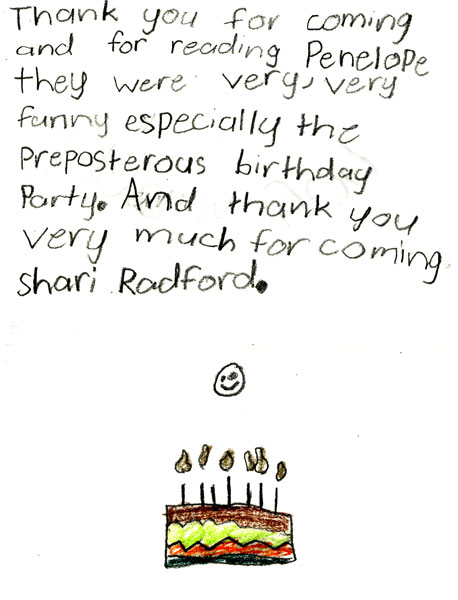 Thank you for coming
and for reading Penelope
they were very, very
funny especially the
Preposterous birthday
Party. And thank you
very much for coming
Shari Radford.